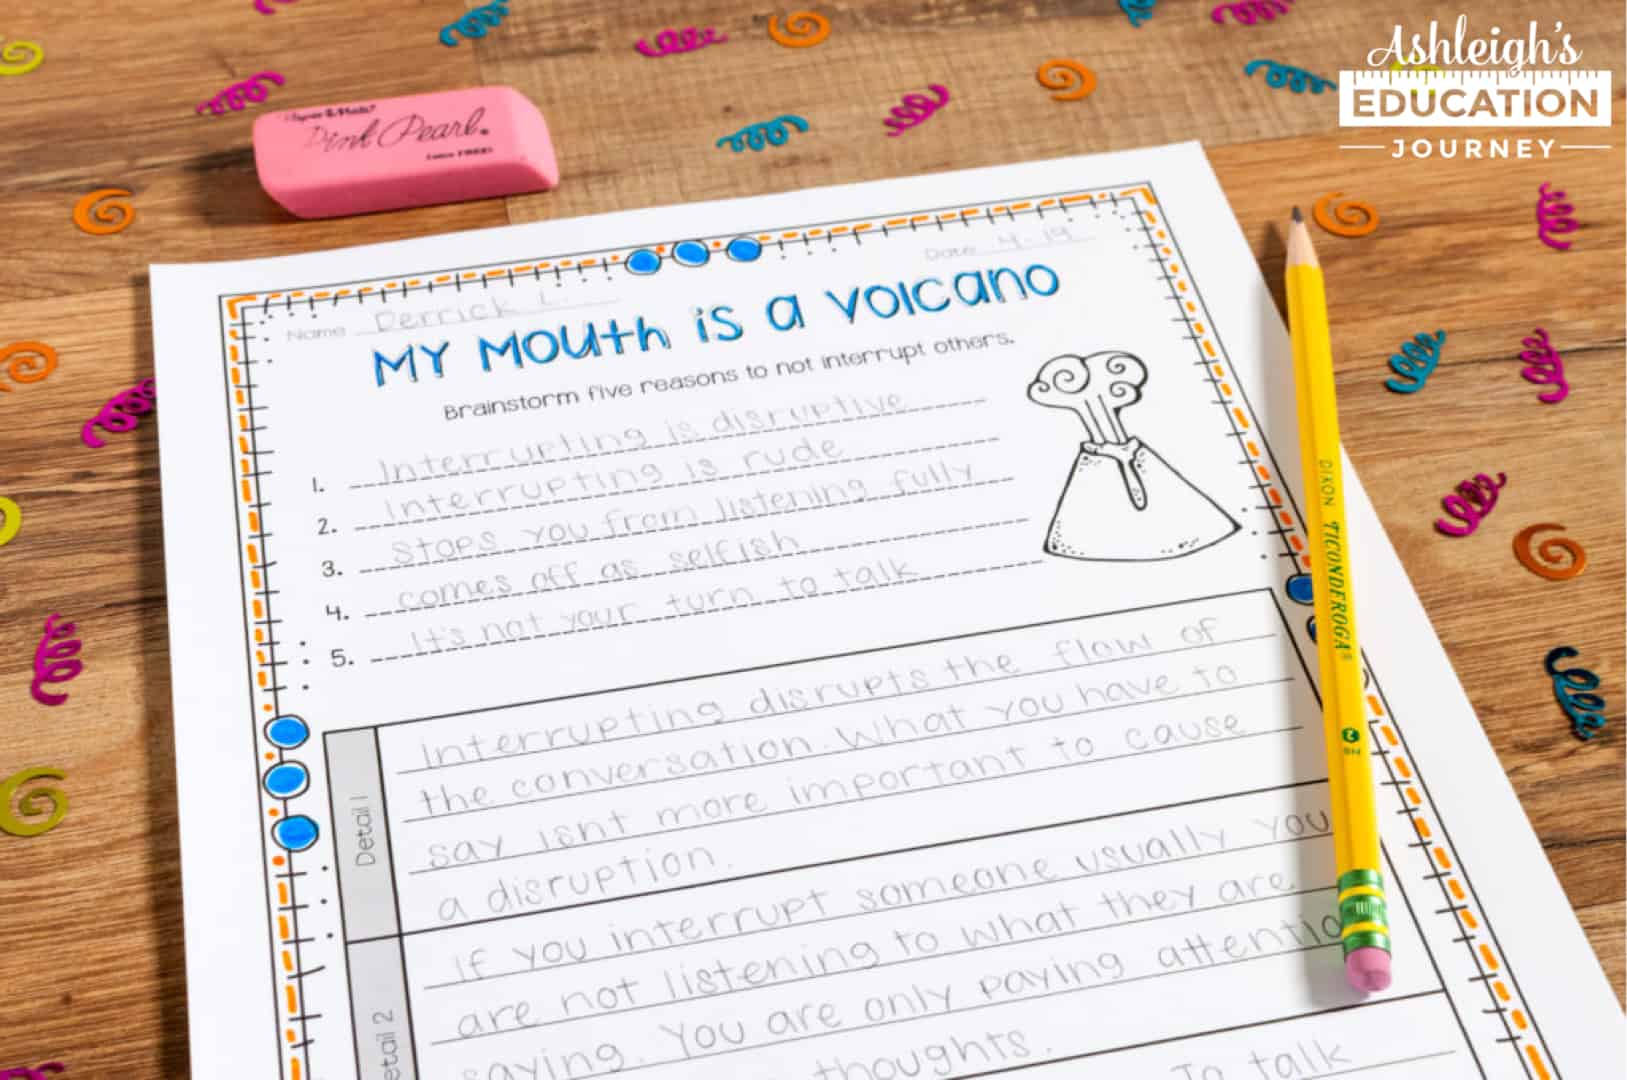 Ashleigh's
EDUCATION
JOURNEY
Pink Pearl®
Name Derrick L.
Date 4-19
MY MOUTH is a VOLCANO
Brainstorm five reasons to not interrupt others.
1. Interrupting is disruptive
2. interrupting is rude
3. stops you from listening fully
4. comes off as selfish
5. It's not your turn to talk
Detail 1
Interrupting disrupts the flow of
the conversation. What you have to
say isnt more important to cause
a disruption.
Detail 2
If you interrupt someone usually you
are not listening to what they are
saying. You are only paying attentio
thoughts.
To talk
DIXON TICONDEROGA®
2
HB